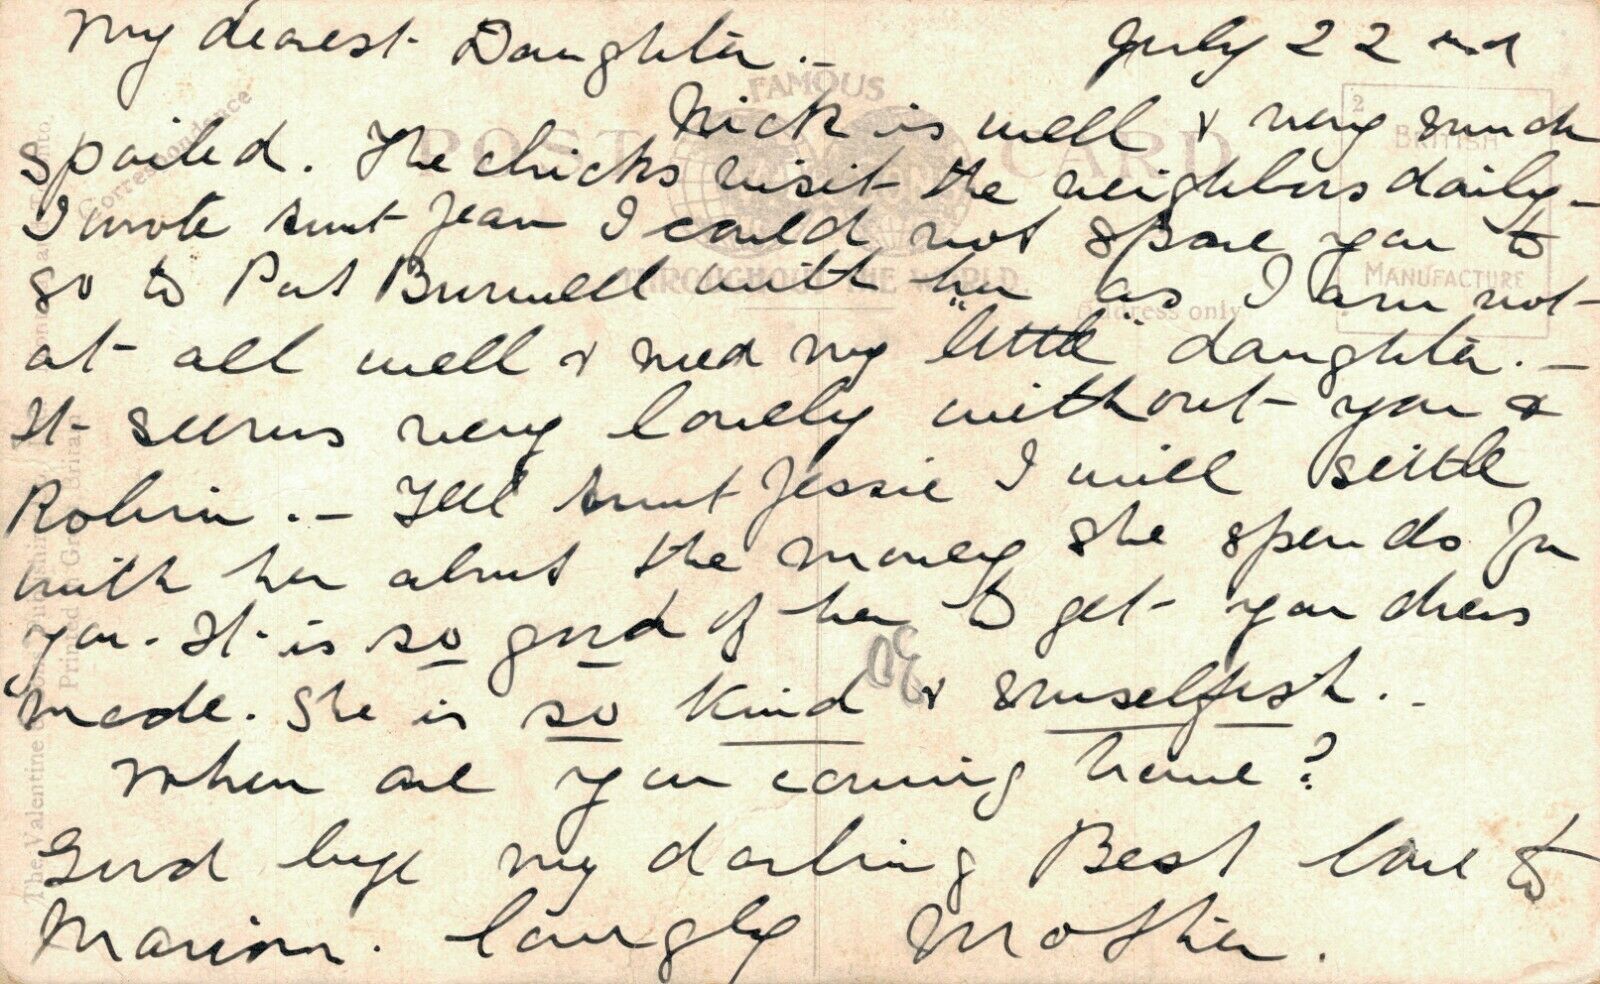 My dearest Daughter. – July 22nd
Nick is well & very much
spoiled. The chicks visit the neighbors daily –
I wrote Aunt Jean I could not spare you to
go to Port Burwell with her as I am not
at all well & need my "little" daughter. –
It seems very lonely without you &
Robin. – Tell Aunt Jessie I will settle
with her about the money she spends for
you. It is so good of her to get your dress
made. She is so kind & unselfish.
When are you coming home?
Good bye my darling Best love to
Marion. Lovingly Mother.
30
FAMOUS
POST CARD
THROUGHOUT THE WORLD.
Correspondence
Address only
BRITISH
MANUFACTURE
The Valentine & Sons Publishing
Printed in Great Britain